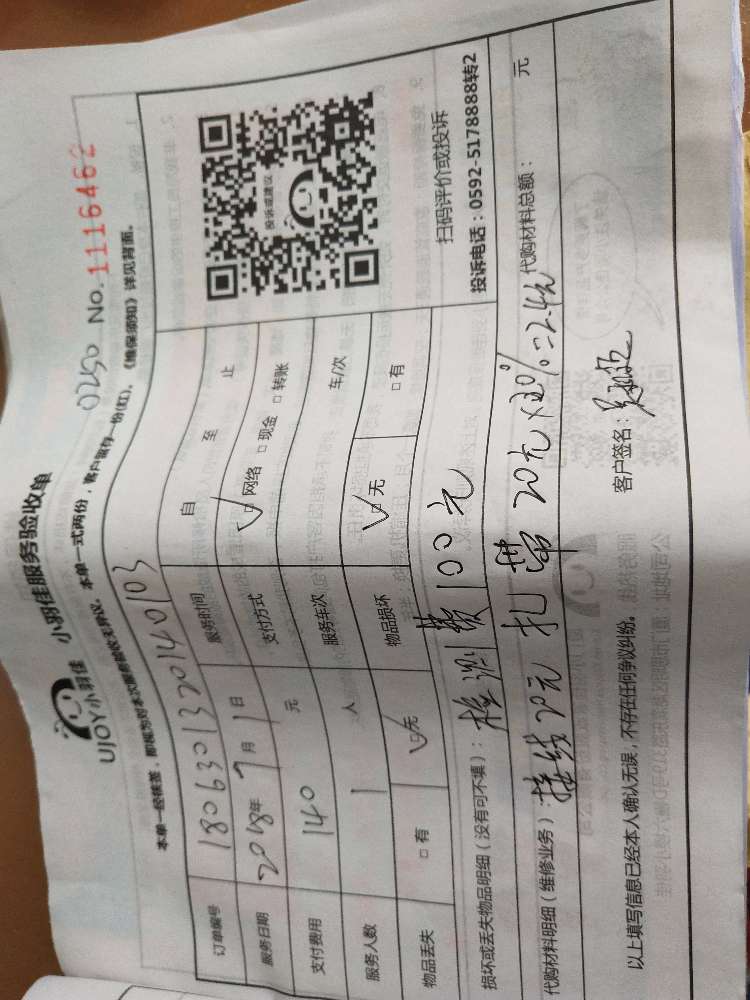 UJOY小羽佳 小羽佳服务验收单
0250 No.1116462
本单一经核签，即视为对本次服务验收无异议。本单一式两份，客户留存一份(红)，《维保须知》详见背面。
订单编号 1806301320140103
服务日期 2018年7月1日 服务时间 自 至 止
支付费用 140 元 支付方式 ☑网络 □现金 □转账
服务人数 1 人 服务车次 车/次
物品丢失 □有 ☑无 物品损坏 ☑无 □有
投诉或建议
扫码评价或投诉
投诉电话：0592-5178888转2
损坏或丢失物品明细（没有可不填）： 检测费100元
代购材料明细（维修业务）： 接线20元 扎带20元×20%=2.4元 代购材料总额： 元
以上填写信息已经本人确认无误，不存在任何争议纠纷。 客户签名：